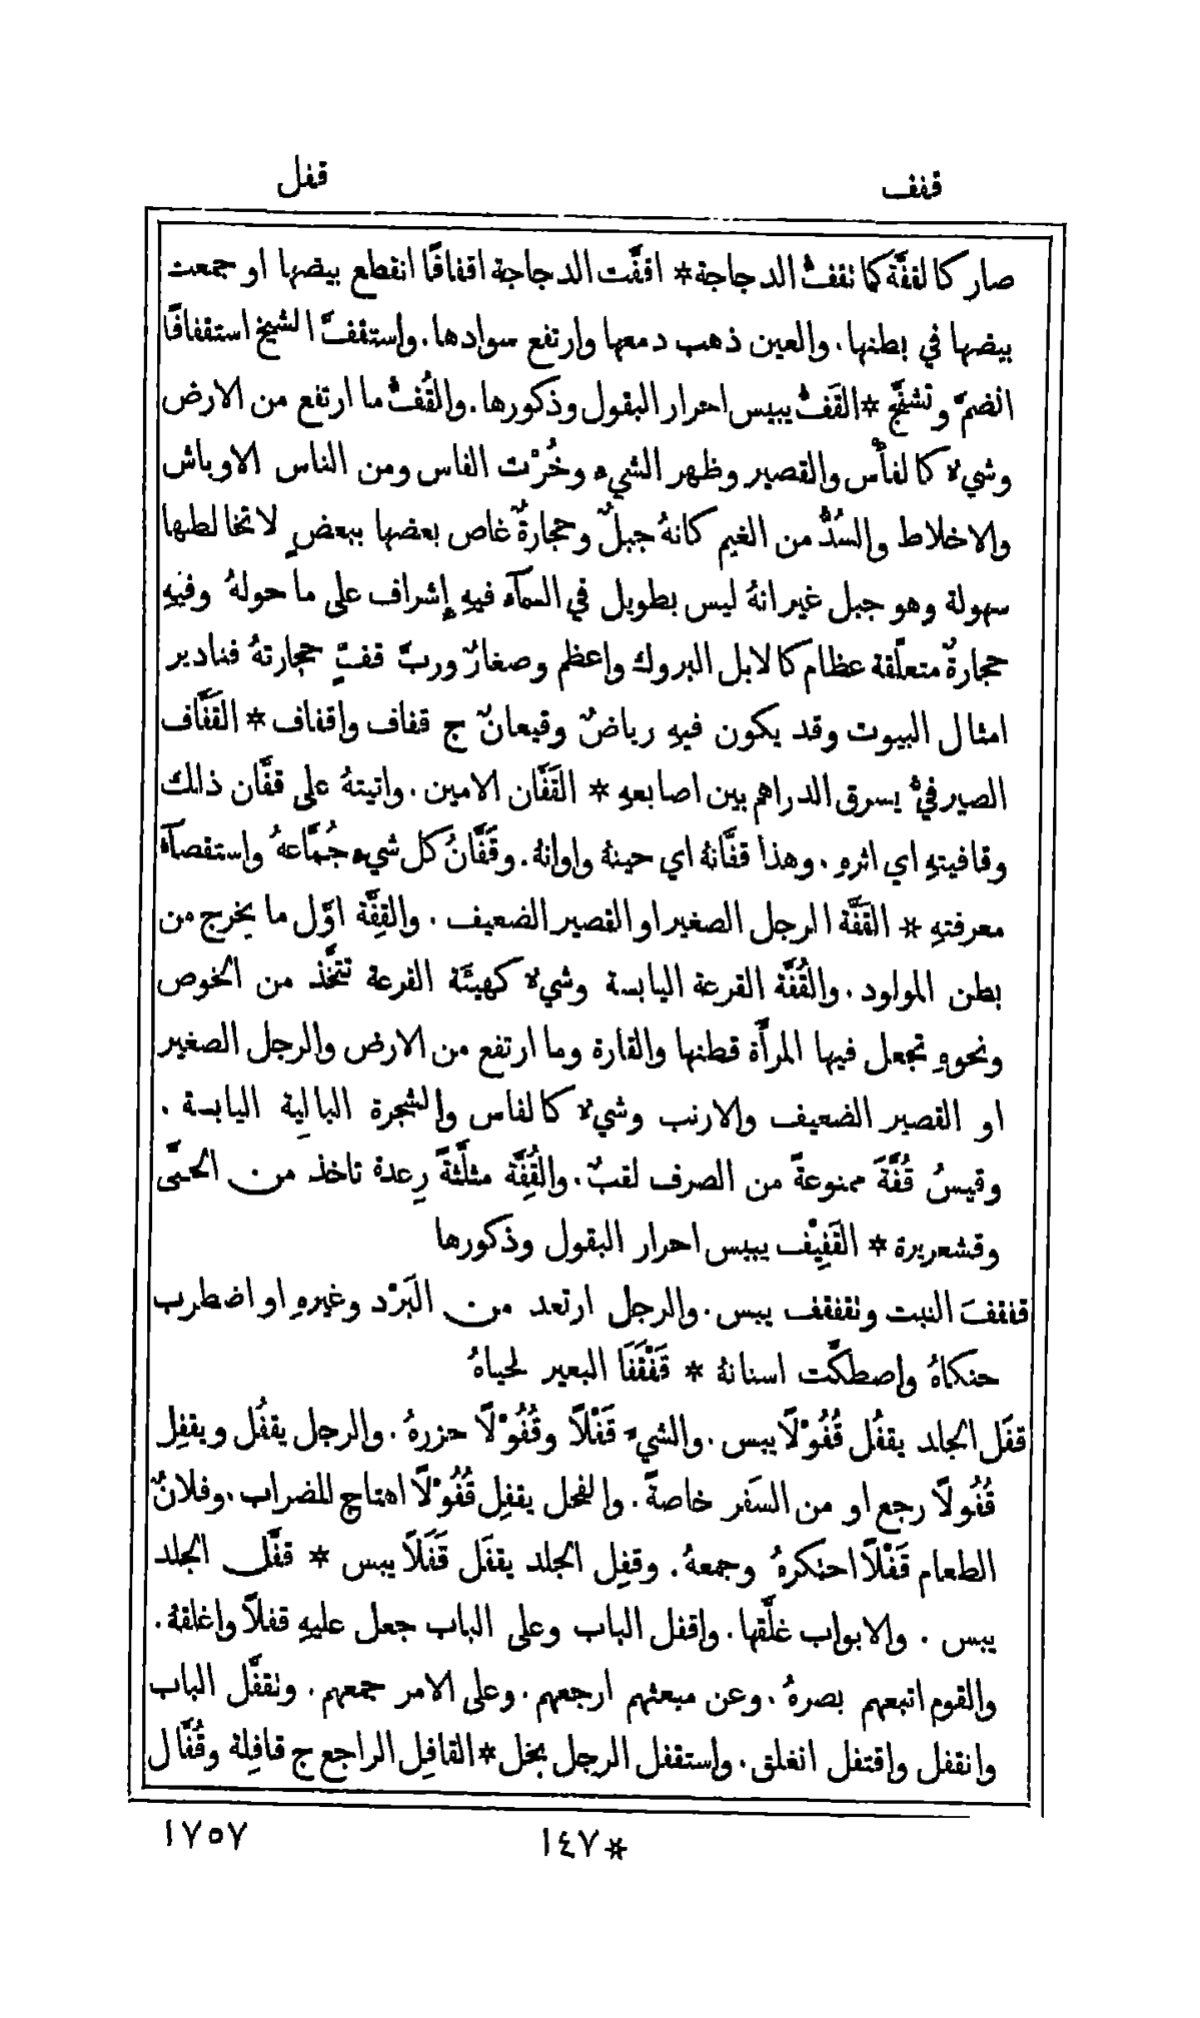 قفف
قفل
صار كالقفَّة كما تقفُّ الدجاجة * اقفَّت الدجاجة اقفافًا انقطع بيضها او جمعت
بيضها في بطنها. والعين ذهب دمعها وارتفع سوادها. واستقفَّ الشيخ استقفافًا
انضمّ وتشنَّج * القَفُّ يبيس احرار البقول وذكورها. والقُفُّ ما ارتفع من الارض
وشيءٌ كالفأس والقصير وظهر الشيء وخُرْت الفاس ومن الناس الاوباش
والاخلاط والسُدُّ من الغيم كانهُ جبلٌ وحجارةٌ غاص بعضها ببعضٍ لا تخالطها
سهولة وهو جبل غير انهُ ليس بطويل في السمآء فيهِ إشراف على ما حولهُ وفيهِ
حجارةٌ متعلّقة عظام كالابل البروك واعظم وصغارٌ وربَّ قفٍّ حجارتهُ فنادير
امثال البيوت وقد يكون فيهِ رياضٌ وقيعانٌ ج قفاف واقفاف * القَفَّاف
الصيرفيُّ يسرق الدراهم بين اصابعهِ * القَفَّان الامين. واتيتهُ على قفَّان ذلك
وقافيتهِ اي اثرهِ. وهذا قفَّانهُ اي حينهُ واوانهُ. وقَفَّانُ كل شيء جُمَّاعهُ واستقصآء
معرفتهِ * القَفَّة الرجل الصغير او القصير الضعيف. والقِفَّة اوَّل ما يخرج من
بطن المولود. والقُفَّة القرعة اليابسة وشيءٌ كهيئَة القرعة تتَّخذ من الخوص
ونحوهِ تجعل فيها المرأَة قطنها والقارة وما ارتفع من الارض والرجل الصغير
او القصير الضعيف والارنب وشيءٌ كالفاس والشجرة البالِية اليابسة.
وقيسُ قُفَّةَ ممنوعةً من الصرف لقبٌ. والقُِفَّة مثلَّثةً رِعدة تاخذ من الحمَّى
وقشعريرة * القَفِيْف يبيس احرار البقول وذكورها
قفقفَ النبت وتقفقف يبس. والرجل ارتعد من البَرْد وغيرهِ او اضطرب
حنكاهُ واصطكَّت اسنانهُ * قَفْقَفَا البعير لحياهُ
قفَل الجلد يقفُل قُفُوْلًا يبس. والشيءَ قَفْلًا وقُفُوْلًا حزرهُ. والرجل يقفُل ويقفِل
قُفُولًا رجع او من السَفر خاصةً. والفحل يقفِل قُفُوْلًا اهتاج للضراب. وفلانٌ
الطعام قَفْلًا احتكرهُ وجمعهُ. وقفِل الجلد يقفَل قَفَلًا يبس * قفَّل الجلد
يبس. والابواب غلَّقها. واقفل الباب وعلى الباب جعل عليهِ قفلًا واغلقهُ.
والقوم اتبعهم بصرهُ. وعن مبعثهم ارجعهم. وعلى الامر جمعهم. وتقفَّل الباب
وانقفل واقتفل انغلق. واستقفل الرجل بخل * القافِل الراجع ج قافِلة وقُفَّال
١٤٧*
١٧٥٧